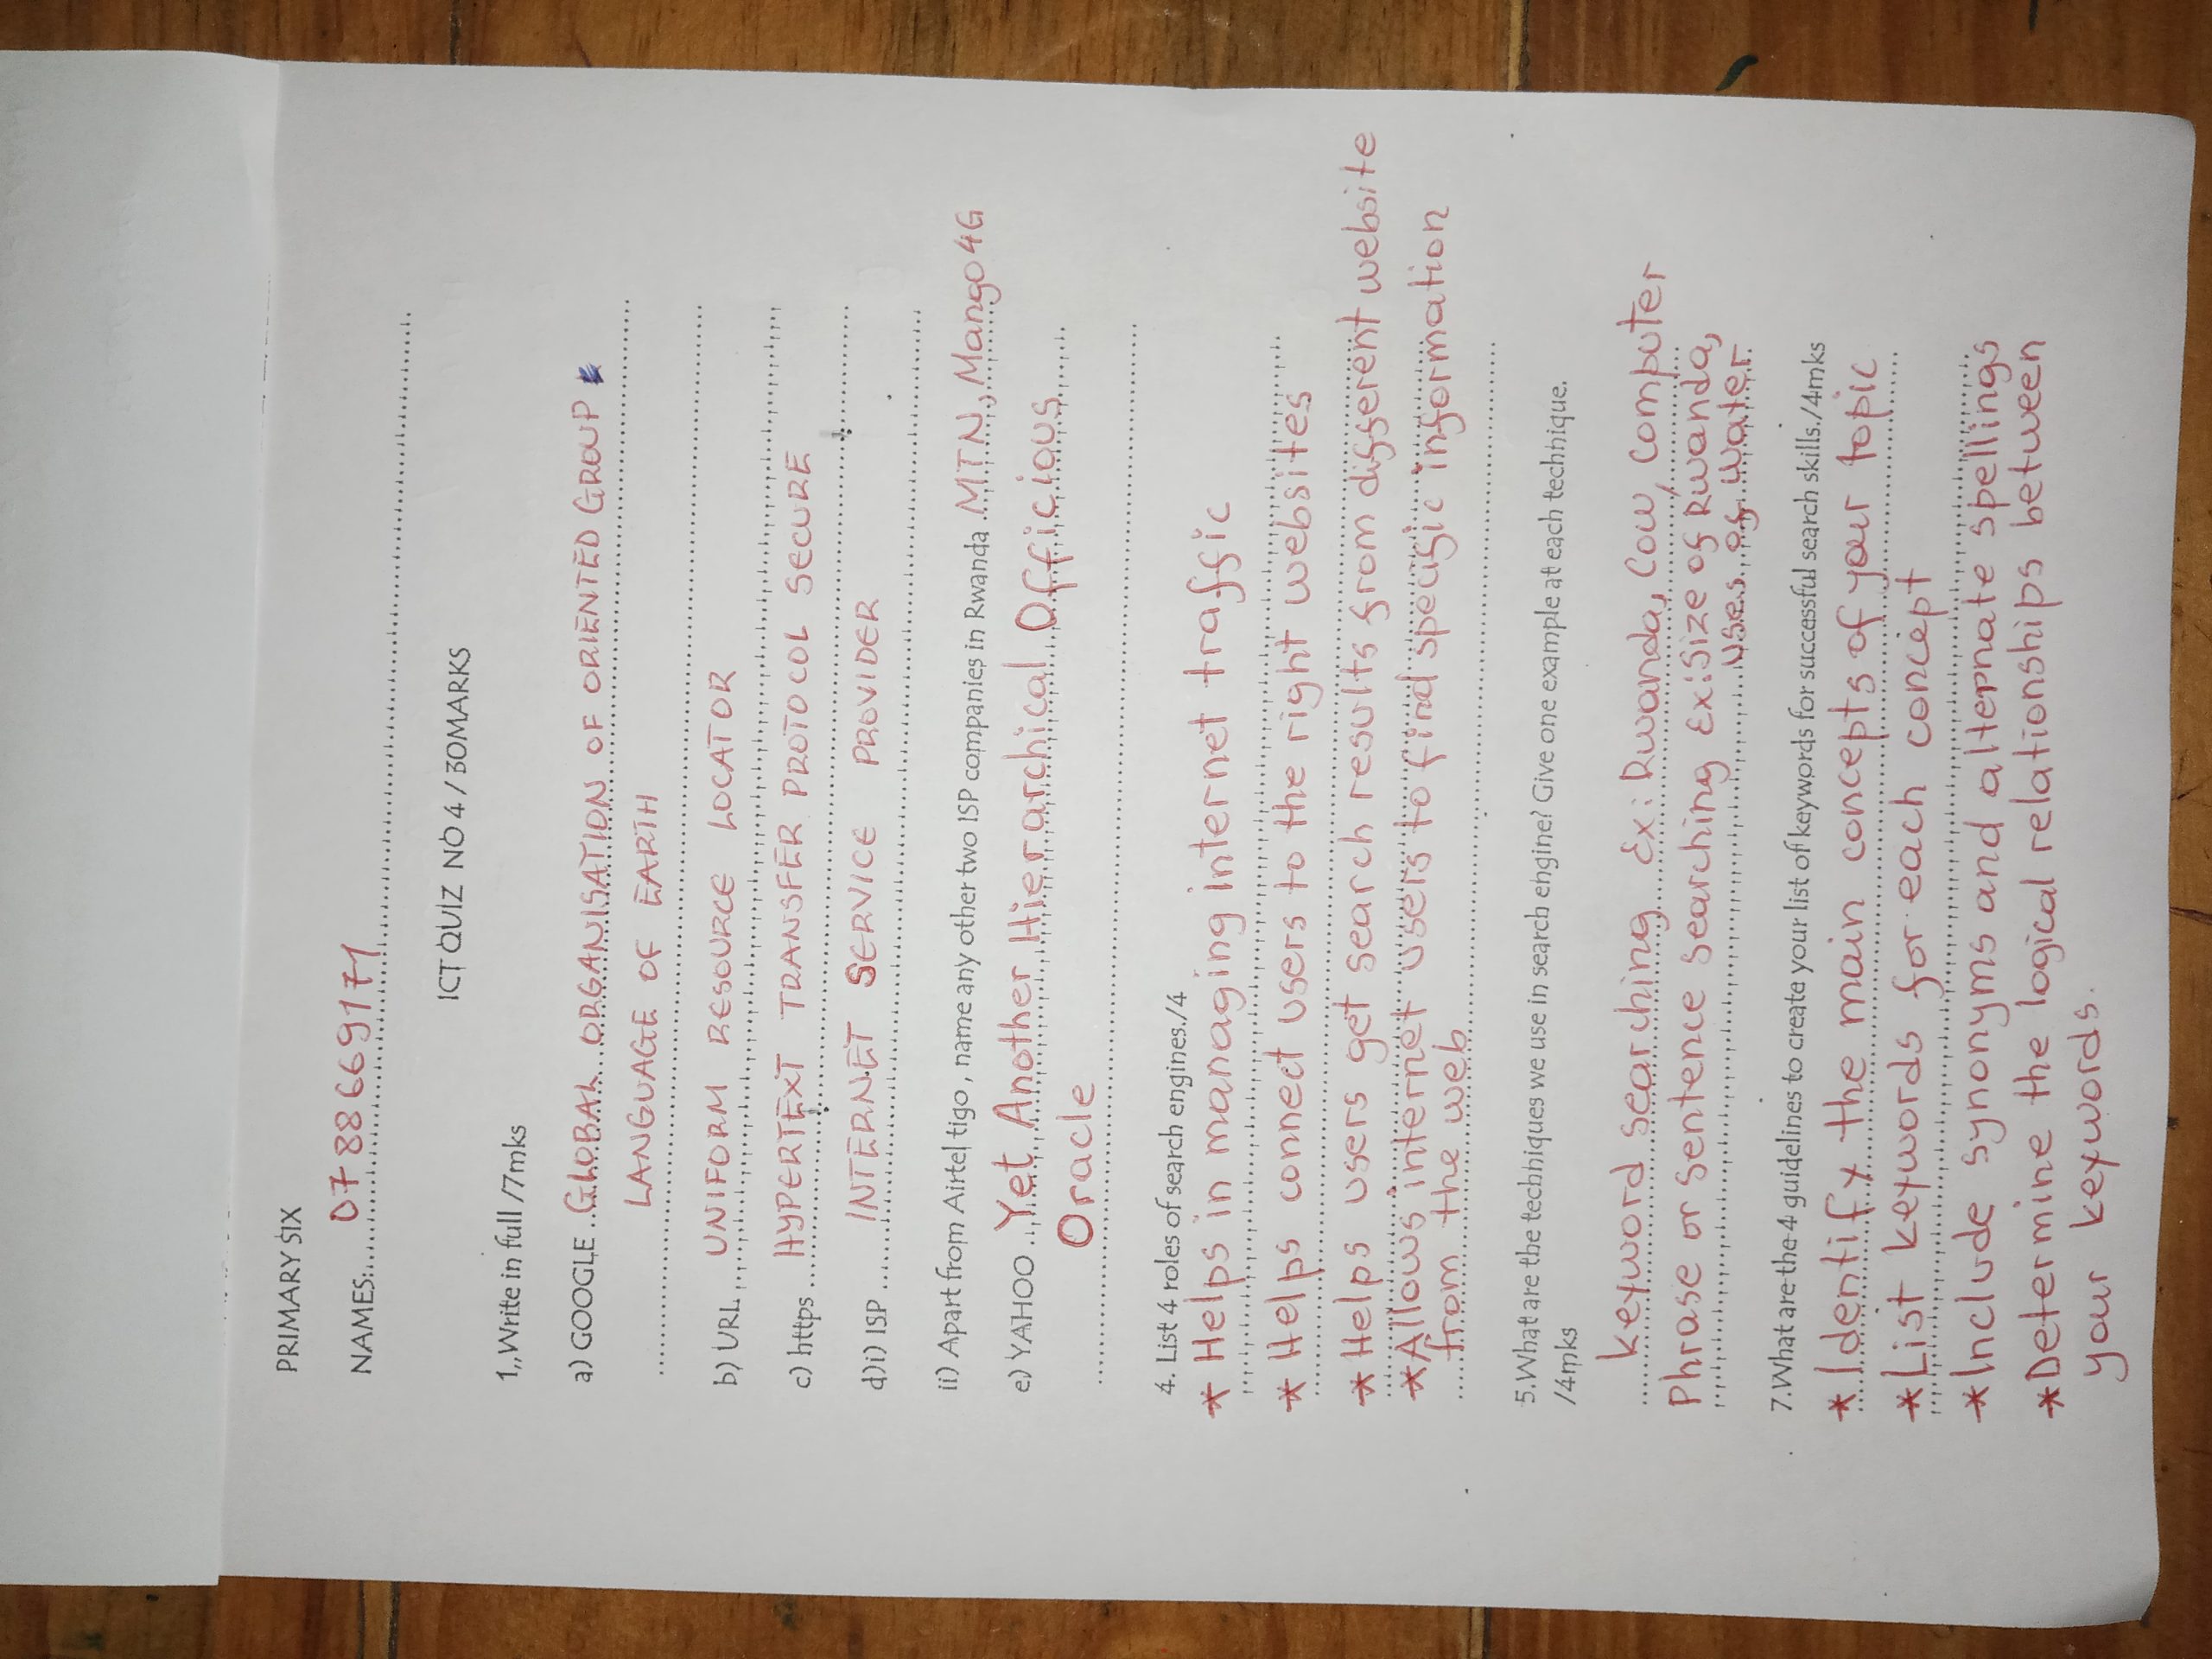 PRIMARY SIX
NAMES:.....0788669171..........
ICT QUIZ NO 4 / 30MARKS
1,,Write in full /7mks
a) GOOGLE ..GLOBAL ORGANISATION OF ORIENTED GROUP
LANGUAGE OF EARTH
b) URL... UNIFORM RESOURCE LOCATOR
c) https .... HYPERTEXT TRANSFER PROTOCOL SECURE
d)i) ISP ...... INTERNET SERVICE PROVIDER
ii) Apart from Airtel tigo , name any other two ISP companies in Rwanda .MTN, Mango 4G
e) YAHOO ...Yet Another Hierarchical Officious
Oracle
4. List 4 roles of search engines./4
* Helps in managing internet traffic
* Helps connect users to the right websites
* Helps users get search results from different website
* Allows internet users to find specific information
from the web
5.What are the techhiques we use in search engine? Give one example at each techique.
/4mks
keyword searching Ex: Rwanda, Cow, Computer
Phrase or sentence searching Ex: Size of Rwanda,
uses of water
7.What are the 4 guidelines to create your list of keywords for successful search skills./4mks
* Identify the main concepts of your topic
* List keywords for each concept
* Include synonyms and alternate spellings
* Determine the logical relationships between
your keywords.